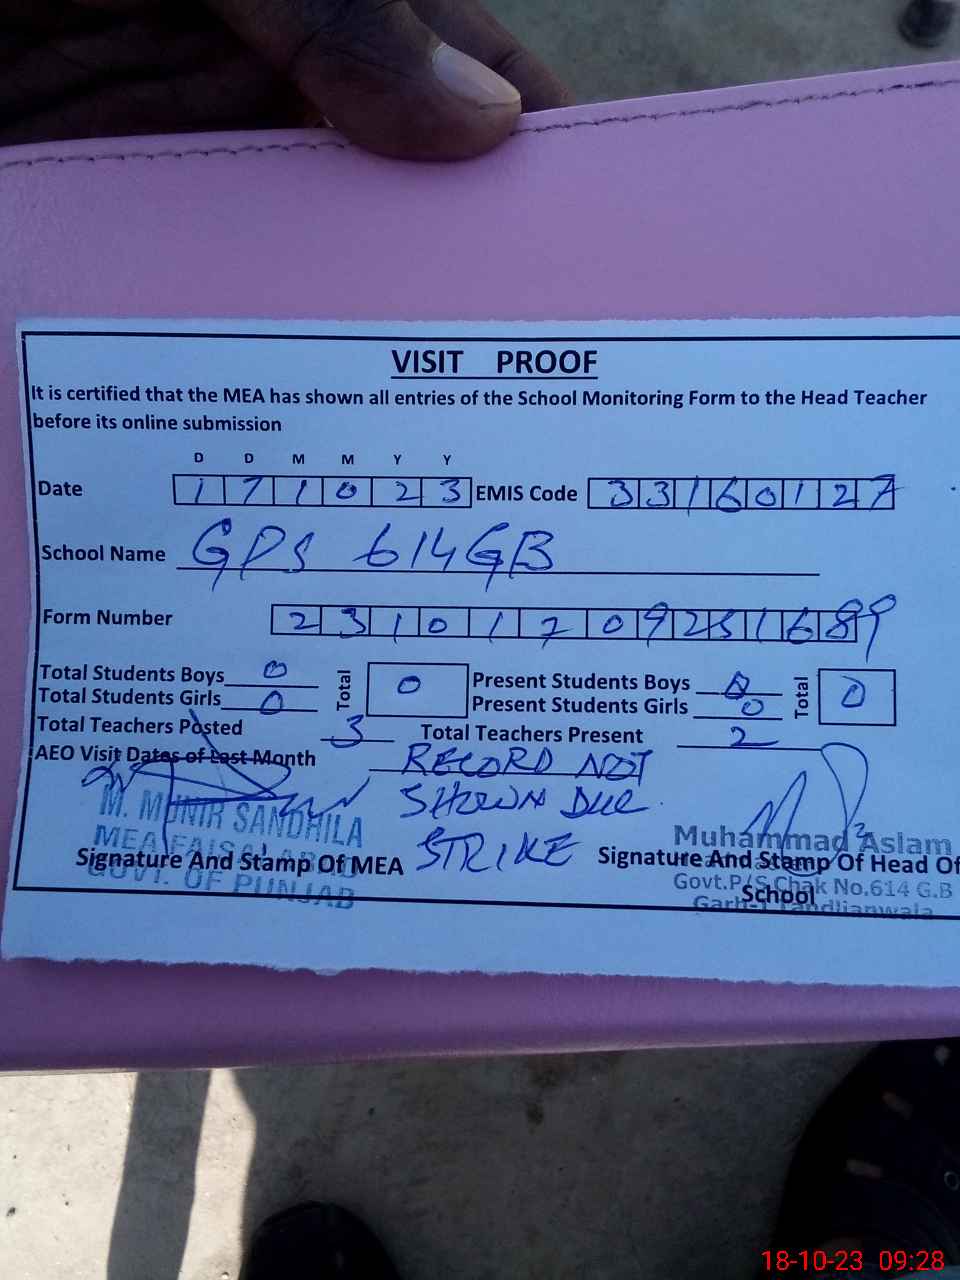 VISIT PROOF
It is certified that the MEA has shown all entries of the School Monitoring Form to the Head Teacher
before its online submission
D D M M Y Y
Date 1 7 1 0 2 3 EMIS Code 3 3 1 6 0 1 2 7
School Name GPS 614GB
Form Number 2 3 1 0 1 7 0 9 2 5 1 6 8 9
Total Students Boys 0 Total 0 Present Students Boys 0 Total 0
Total Students Girls 0 Present Students Girls 0
Total Teachers Posted 3 Total Teachers Present 2
AEO Visit Dates of Last Month RECORD NOT
SHOWN DUE
STRIKE
M. MUNIR SANDHILA
MEA FAISALABAD
GOVT. OF PUNJAB
Signature And Stamp Of MEA
Muhammad Aslam
Signature And Stamp Of Head Of
School
Govt.P/S Chak No.614 G.B
Tandlianwala
18-10-23 09:28